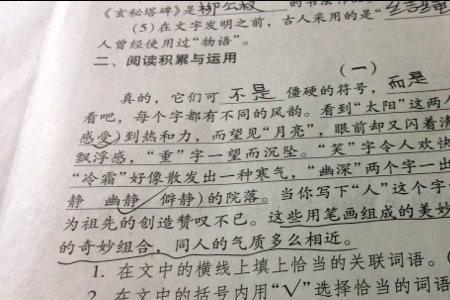 《玄秘塔碑》是 柳公权
(5) 在文字发明之前，古人采用的是“
人曾经使用过“物语”。
二、阅读积累与运用
(一)
真的，它们可 不是 僵硬的符号， 而是
看吧，每个字都有不同的风韵。看到“太阳”这两
感受)到热和力，而望见“月亮”，眼前却又闪着
飘浮感，“重”字一望而沉坠。“笑”字令人欢快
“冷霜”好像散发出一种寒气，“幽深”两个字一出
静 幽静√ 僻静)的院落。当你写下“人”这个字
为祖先的创造赞叹不已。这些用笔画组成的美妙
的奇妙组合，同人的气质多么相近。
1. 在文中的横线上填上恰当的关联词语。(
2. 在文中的括号内用“√”选择恰当的词语